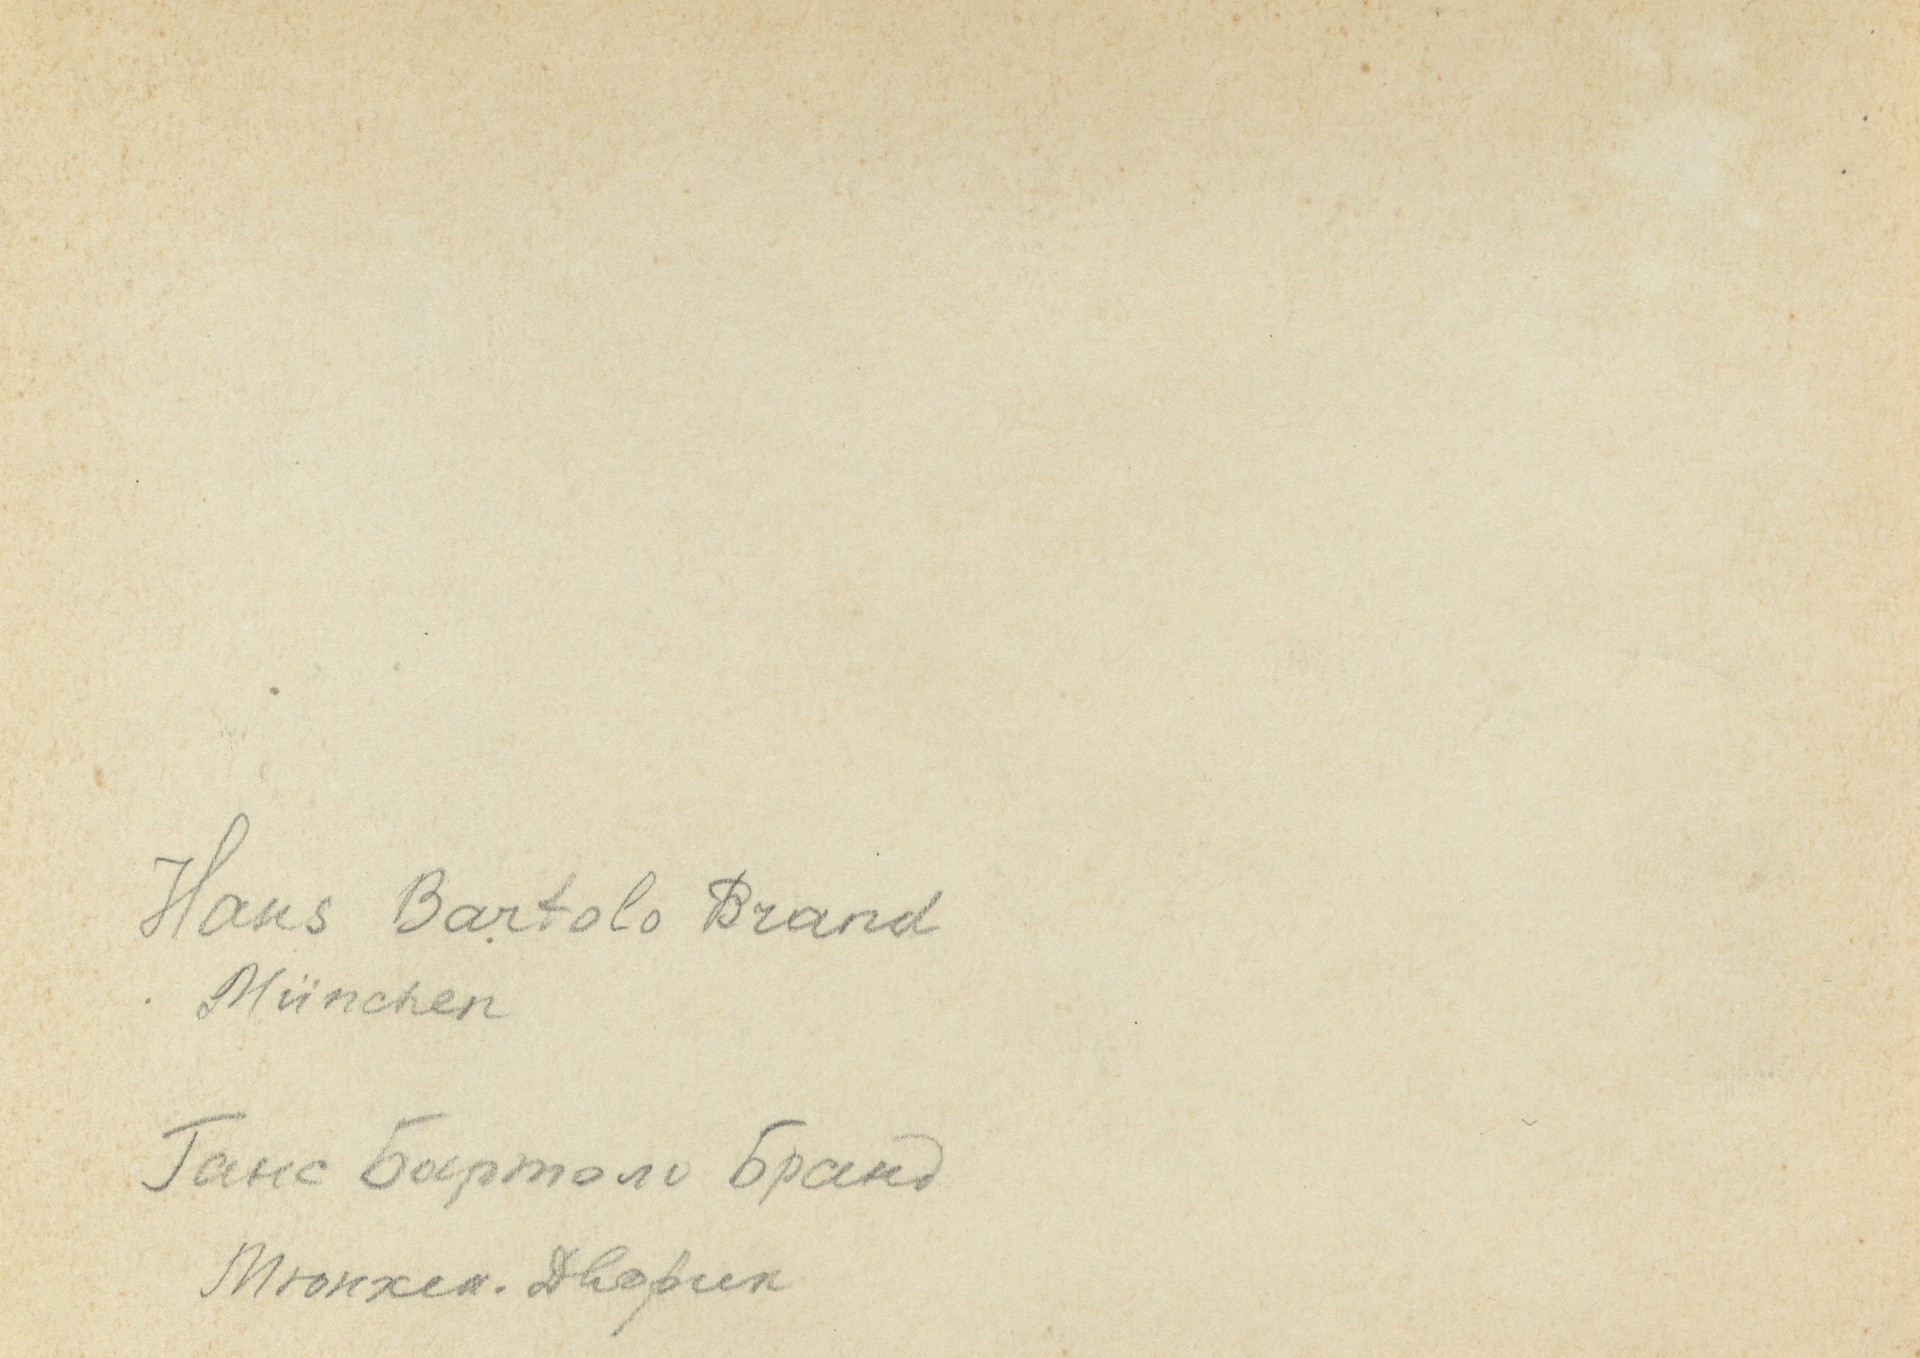 Hans Bartolo Brand
München
Ганс Бартоло Бранд
Мюнхен. Дворик